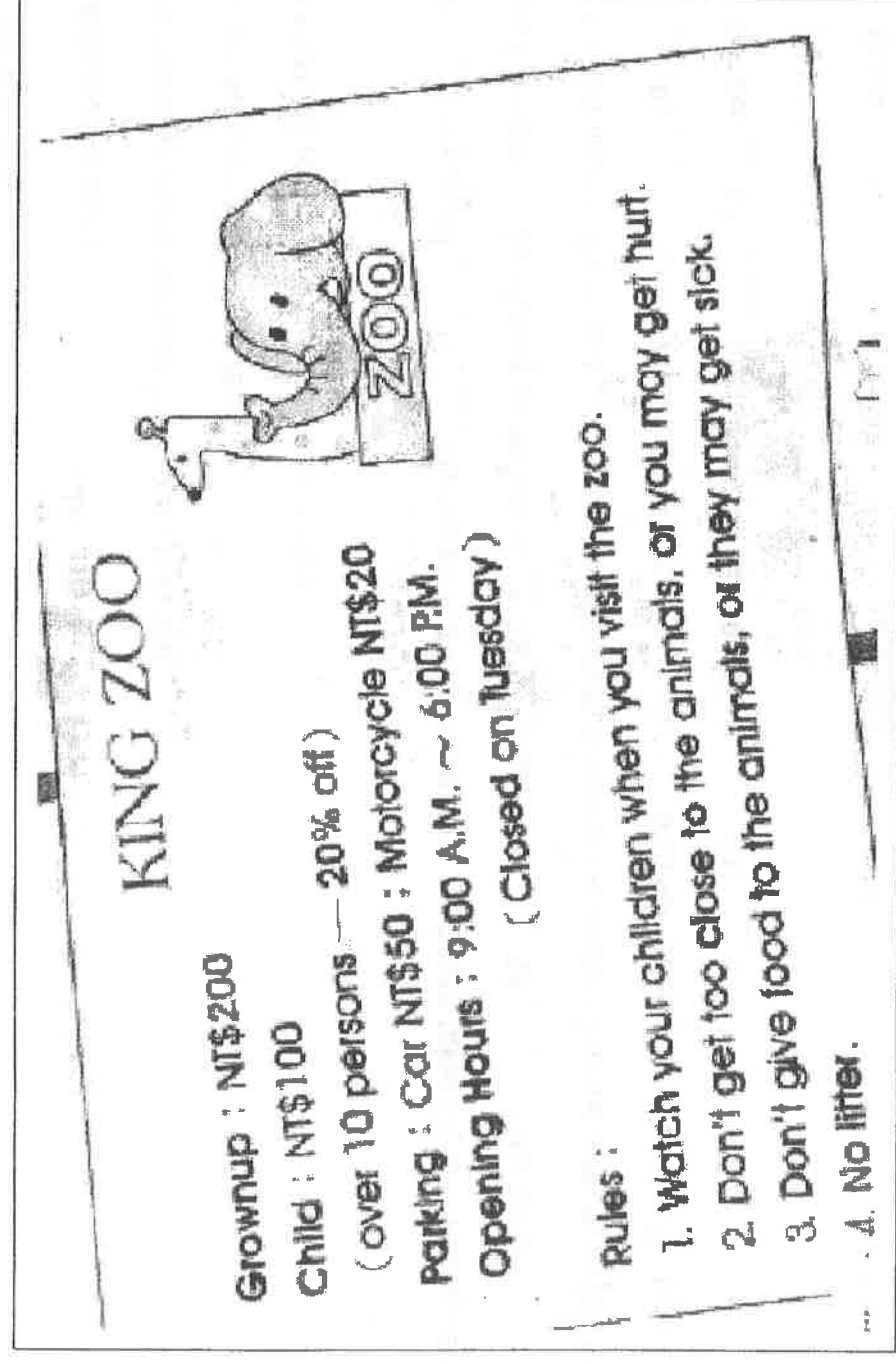 KING ZOO
ZOO
Grownup : NT$200
Child : NT$100
(over 10 persons — 20% off)
Parking : Car NT$50 : Motorcycle NT$20
Opening Hours : 9:00 A.M. ~ 6:00 P.M.
(Closed on Tuesday)
Rules :
1. Watch your children when you visit the zoo.
2. Don't get too close to the animals, or you may get hurt.
3. Don't give food to the animals, or they may get sick.
4. No litter.